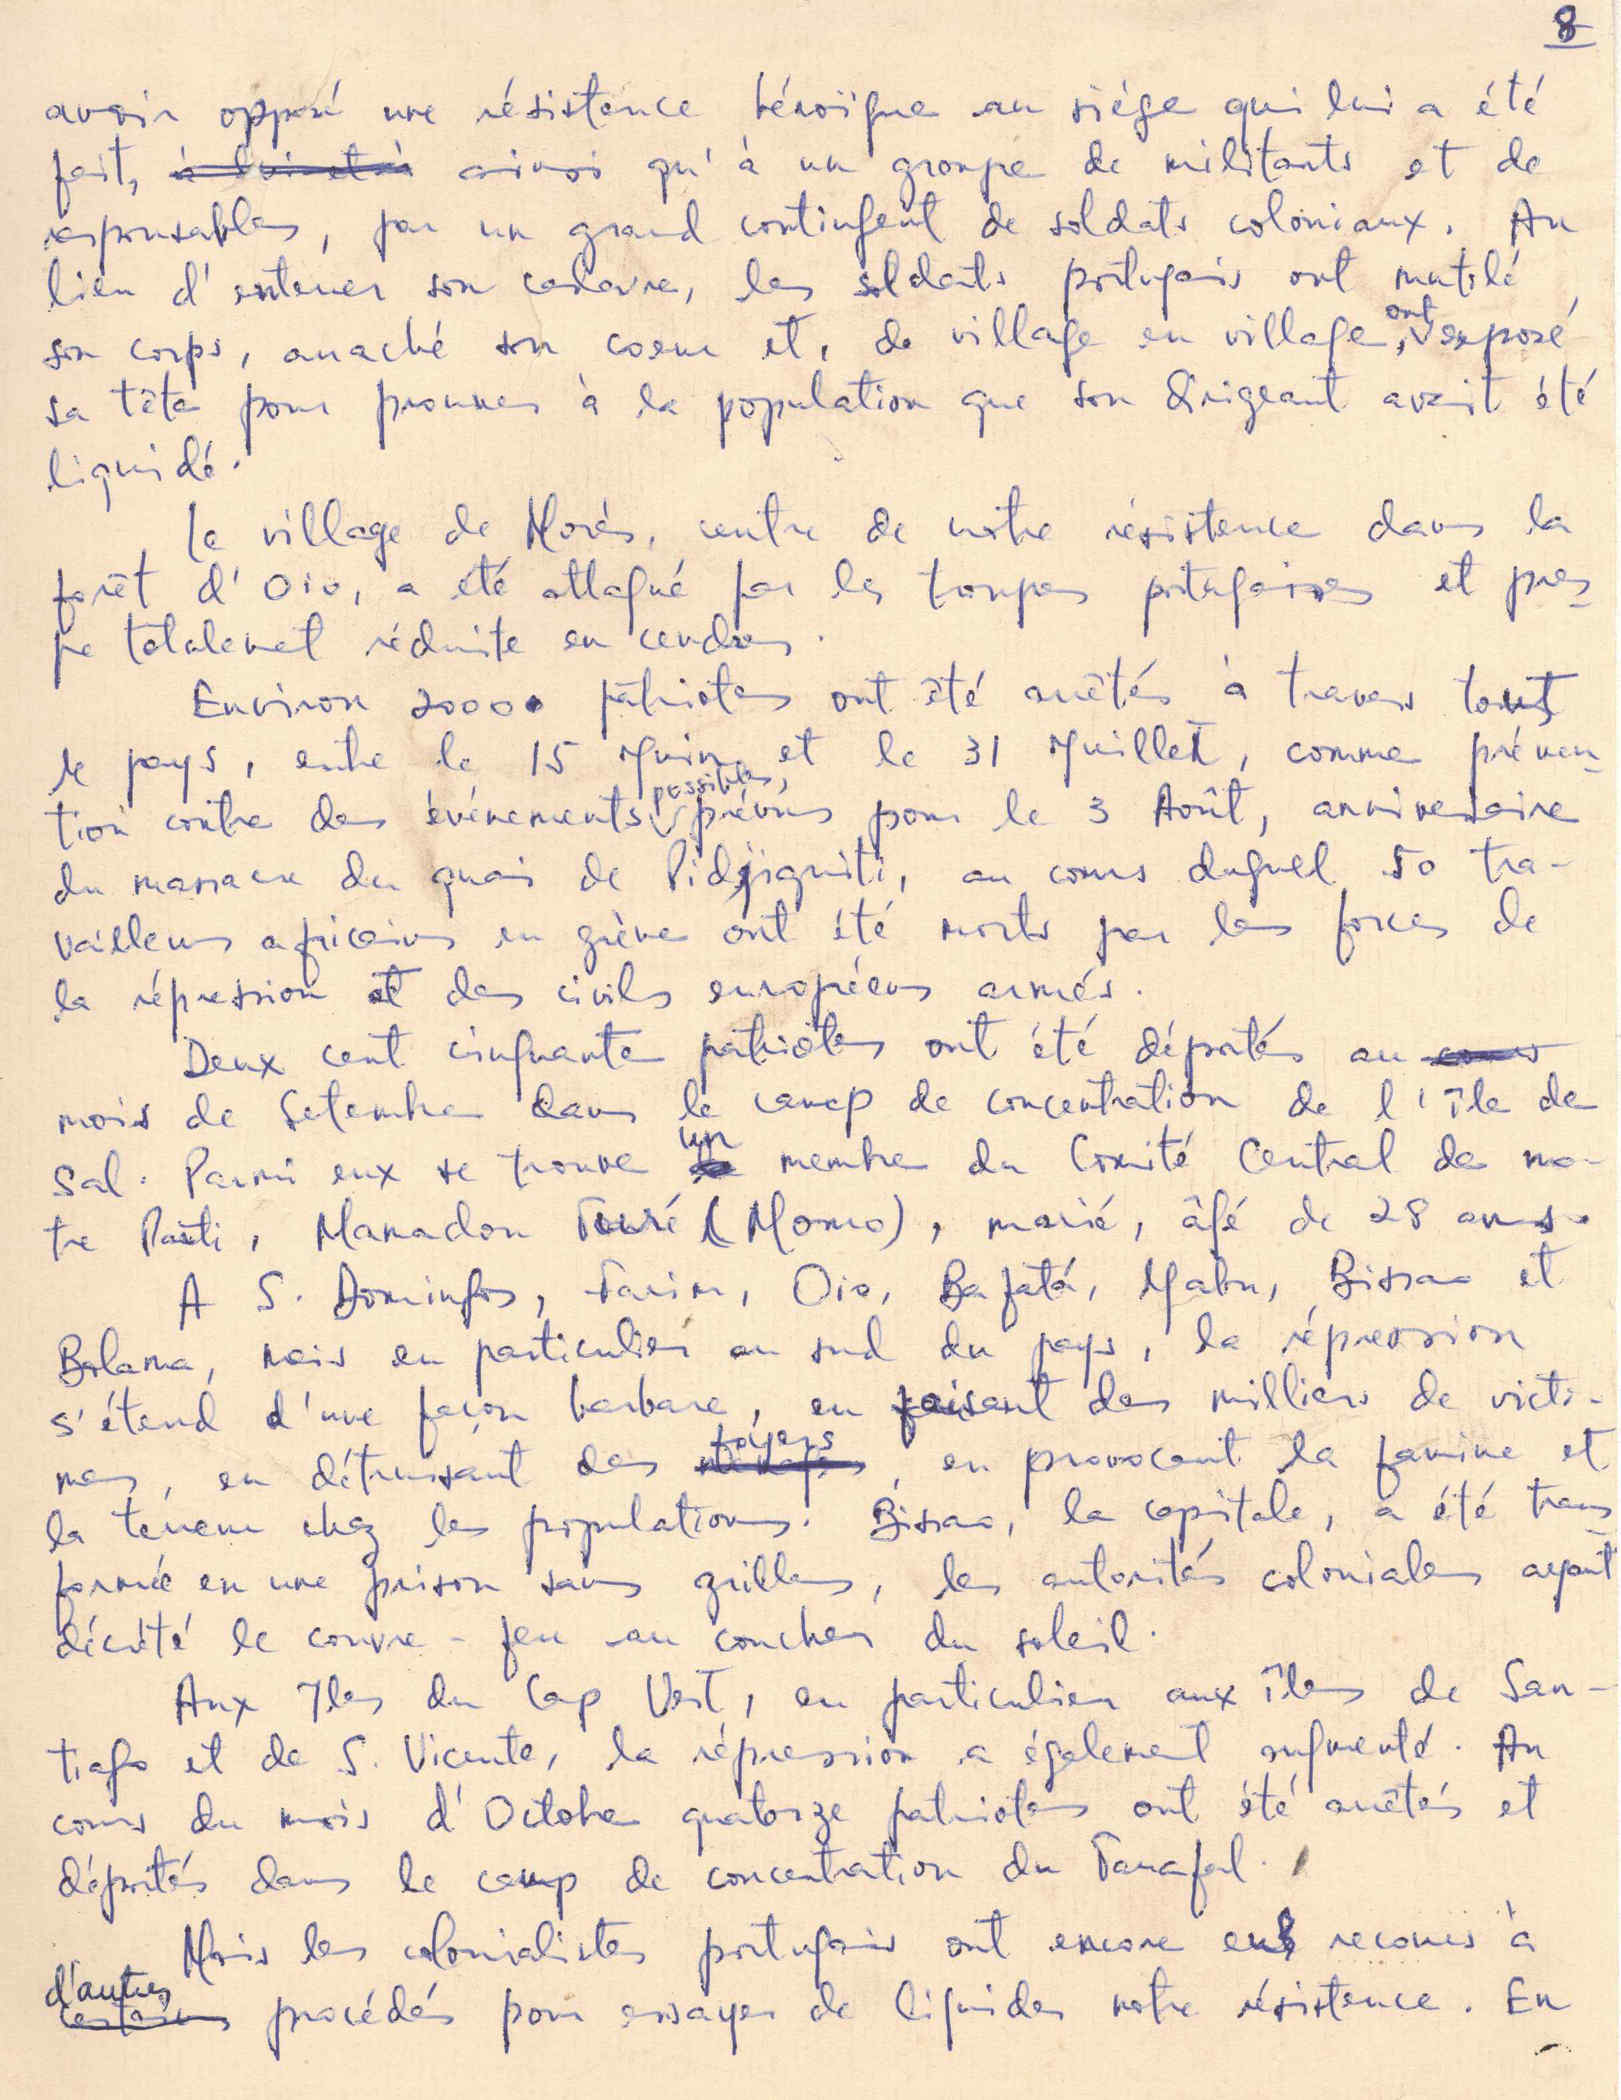 8
avoir opposé une résistence héroïque au siége qui lui a été
fait, à lui et à ainsi qu'à un groupe de militants et de
responsables, par un grand contingent de soldats coloniaux. Au
lieu d'enterrer son cadavre, les soldats portugais ont mutilé
son corps, arraché son coeur et, de village en village, ont exposé
sa tête pour prouver à la population que son dirigeant avait été
liquidé.
Le village de Morès, centre de notre résistence dans la
forêt d'Oio, a été attaqué par les troupes portugaises et pres-
que totalement réduite en cendres.
Environ 2000 patriotes ont été arrêtés à travers tout
le pays, entre le 15 Juin et le 31 Juillet, comme préven-
tion contre des événements possibles, prévus pour le 3 Août, anniversaire
du massacre du quai de Pidjiguiti, au cours duquel 50 tra-
vailleurs africains en grève ont été morts par les forces de
la répression et des civils européens armés.
Deux cent cinquante patriotes ont été déportés au cours
mois de Setembre dans le camp de concentration de l'île de
Sal. Parmi eux se trouve un membre du Comité Central de no-
tre Parti, Mamadou Touré (Momo), marié, âgé de 28 ans.
A S. Domingos, Farim, Oio, Bafatá, Gabu, Bissao et
Bolama, mais en particulier au sud du pays, la répression
s'étend d'une façon barbare, en faisant des milliers de victi-
mes, en détruisant des foyers, en provocant la famine et
la terreur chez les populations. Bissao, la capitale, a été trans-
formée en une prison sans grilles, les autorités coloniales ayant
décrété le couvre-feu au coucher du soleil.
Aux Iles du Cap Vert, en particulier aux îles de San-
tiago et de S. Vicente, la répression a également augmenté. Au
cours du mois d'Octobre quatorze patriotes ont été arrêtés et
déportés dans le camp de concentration du Tarrafal.
Mais les colonialistes portugais ont encore eu recours à
d'autres certains procédés pour essayer de liquider notre résistence. En